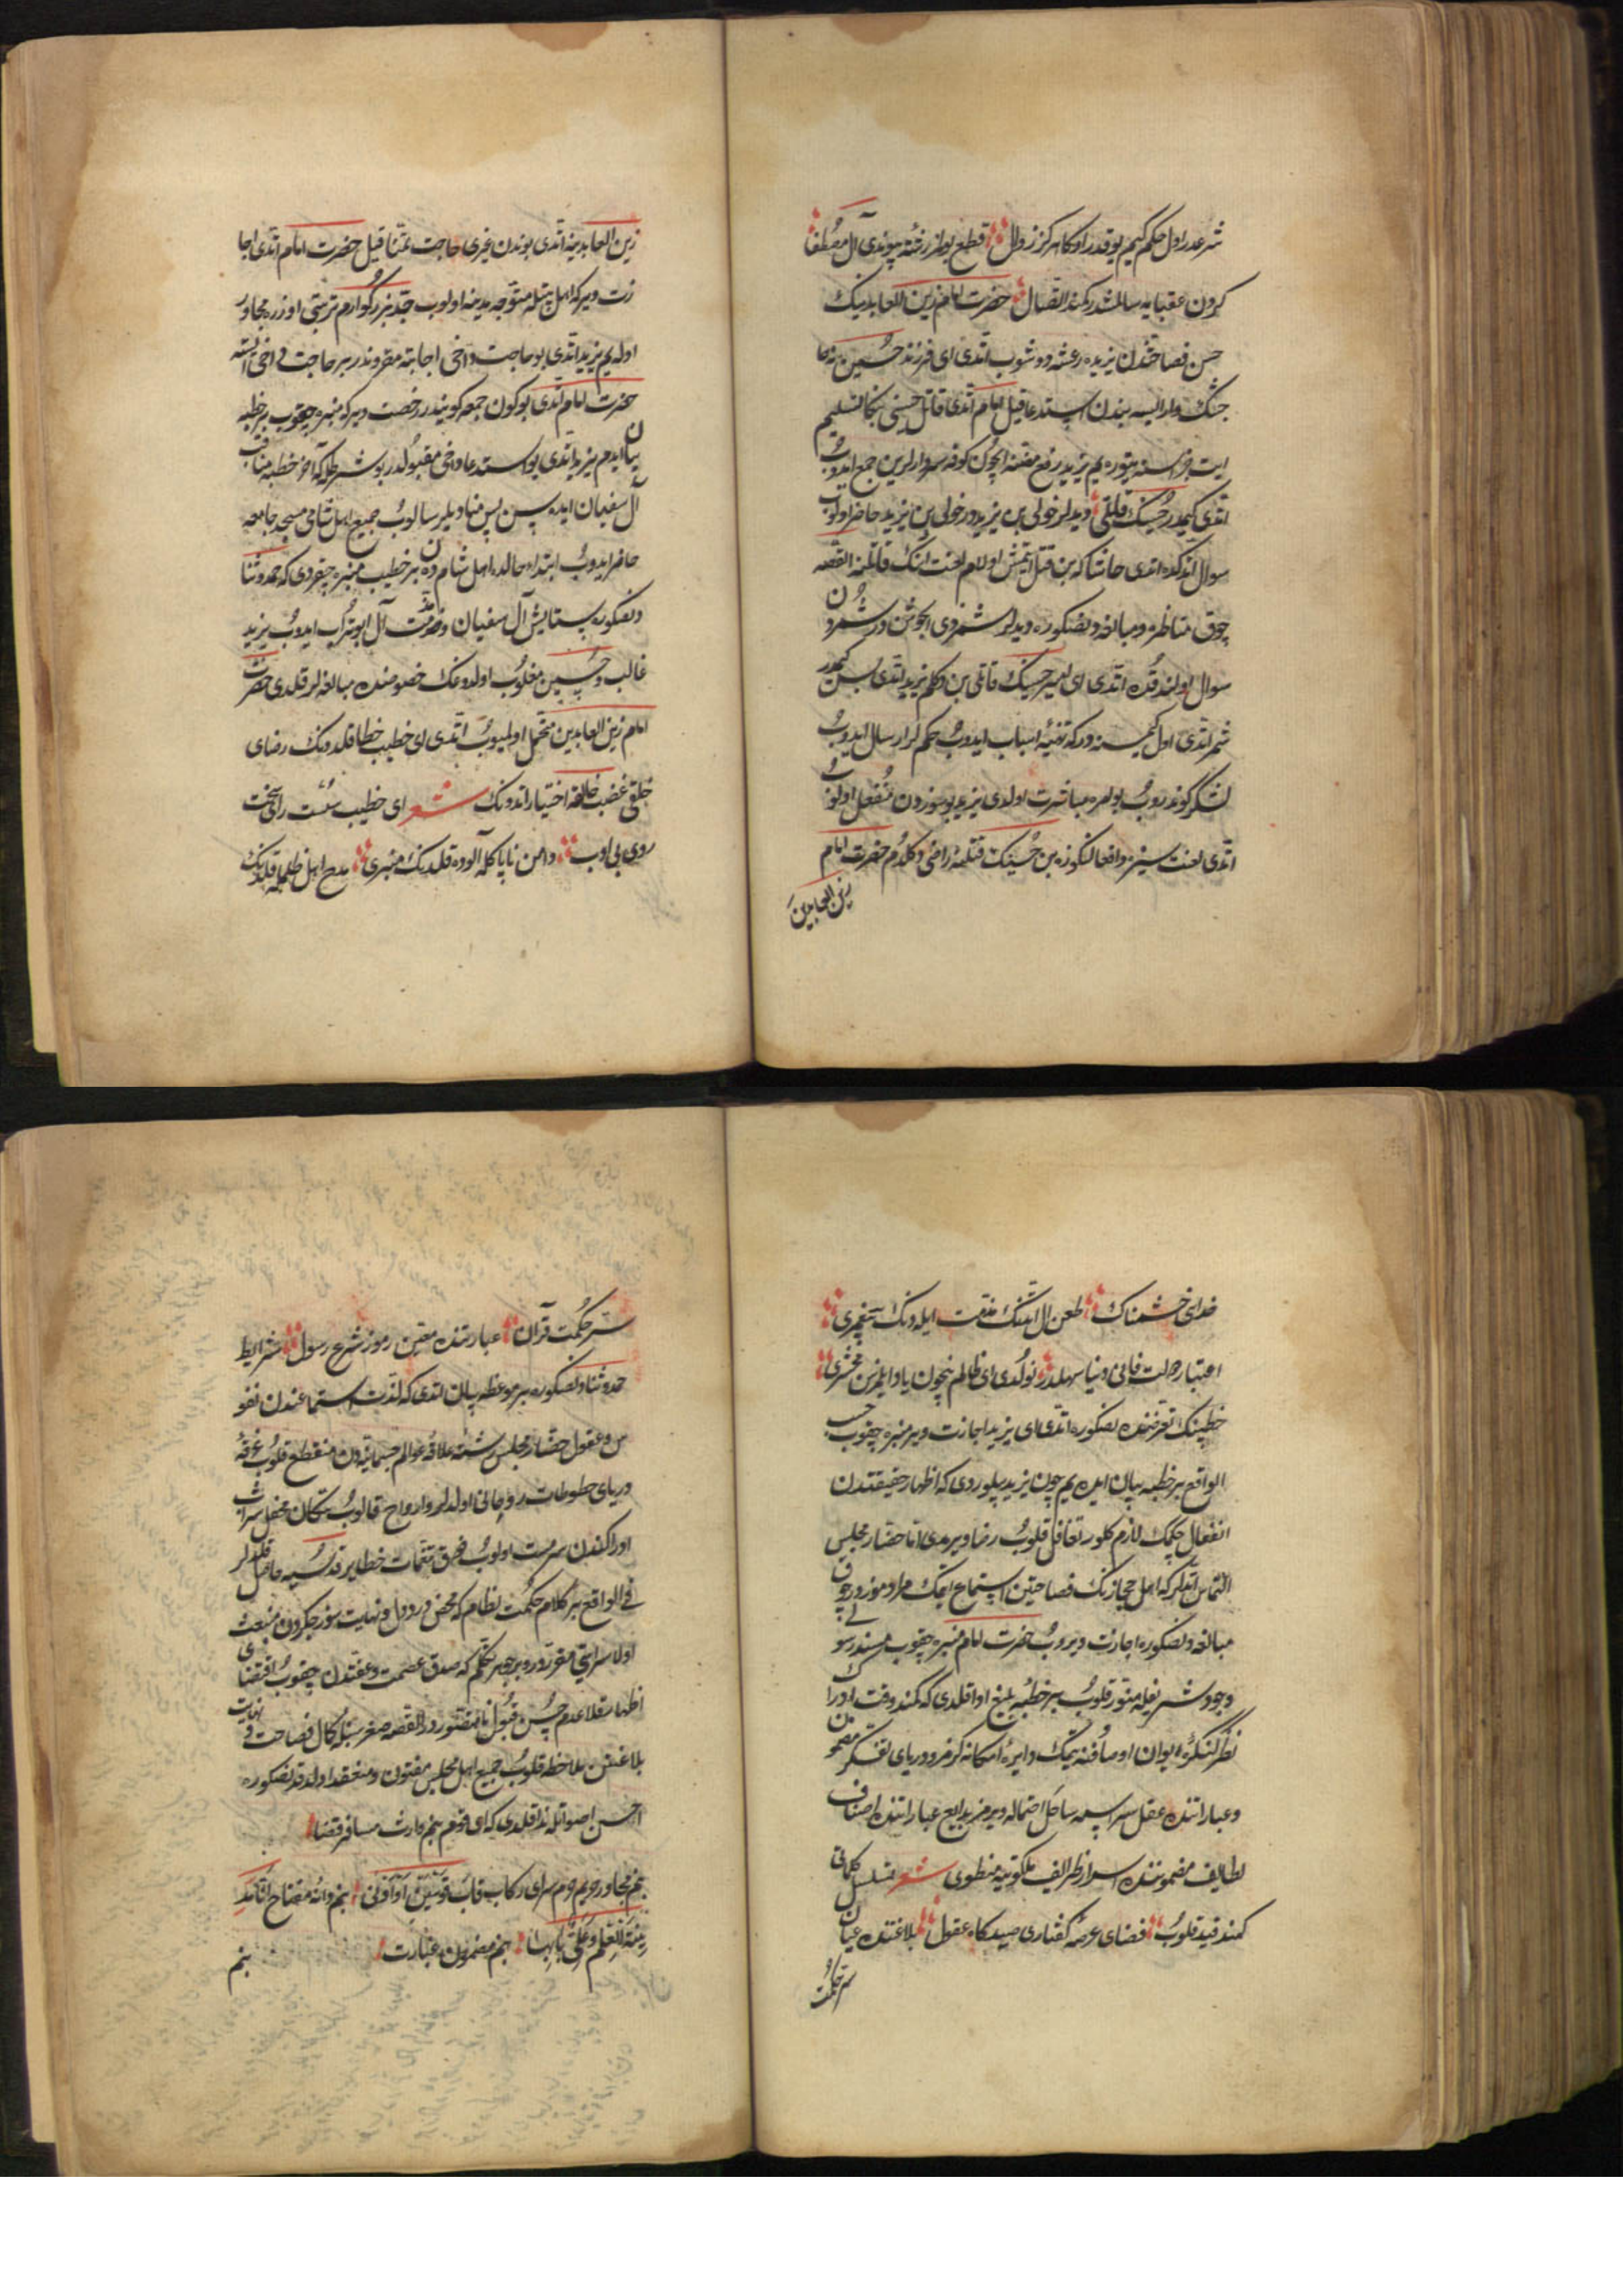 شرعدر اول حکم کیم یوقدر اوکا هرکز زوال قطع بولمز رشته پیوندی آل مصطفا
کردن عقبایه سالمشدر کمند اتصال حضرت امام زین العابدینک
حسن فصاحتندن یزیده رعشه دوشوب اتدی ای فرزند حسین نه حا
جتک وار ایسه بندن استدعا قیل امام اتدی قاتل حسینی بکا تسلیم
ایت جزاسنه یتوره یم یزید رفع مفتنه ایچون کوفه سردارلرین جمع ایدوب
اتدی کیمدر حسینک قاتلی دیدلر خولی بن یزیددر خولی بن یزید حاضر اولوب
سوال اتدکده اتدی حاشا که بن قتل ایتمش اولام لعنت انک قاتلنه القصه
چوق مناظره و مبالغه دنصکوره دیدلر شمر ذی الجوشن در شمردن
سوال اولندقده اتدی ای امیر حسینک قاتلی بن دکلم یزید اتدی پس کیمدر
شمر اتدی اول کمسنه درکه تهیه اسباب ایدوب حکملر ارسال ایدوب
لشکر کوندروب بو امره مباشرت اولدی یزید بو سوزدن منفعل اولوب
اتدی لعنت سیزه واقعا لنکوزه بن حسینک قتلنه راضی دکلدم حضرت امام
زین العابدین
زین العابدینه اتدی بوندن غیری حاجت تمنا قیل حضرت امام اتدی اجا
زت ویر که اهل بیتله متوجه مدینه اولوب جد بزرکوارم تربتی اوزره مجاور
اوله یم یزید اتدی بو حاجت داخی اجابته مقروندر بر حاجت داخی استه
حضرت امام اتدی بو کون جمعه کونیدر رخصت ویر که منبره چیقوب بر خطبه
بیان ایدم یزید اتدی بو استدعا داخی مقبولدر بو شرطله که آخر خطبه مناقب
آل سفیان ایده سن پس منادیلر سالوب جمیع اهل شامی مسجد جامعه
حاضر ایدوب ابتداء حالده اهل شامدن بر خطیب منبره چیقردی که حمد و ثنا
دنصکوره ستایش آل سفیان و مذمت آل ابوتراب ایدوب یزید
غالب و حسین مغلوب اولدوغنک خصوصنده مبالغه لر قلدی حضرت
امام زین العابدین متحمل اولمیوب اتدی ای خطیب خطا قلدونک رضای
خلقی غضب خالقه اختیار اتدونک شعر ای خطیب سست رای سخت
روی بی ادب دامن ناپاکله آلوده قلدنک منبری مدح اهل ظلمله قلدنک
خدای خشمناک طعن ال ایتنک منقبت ایله دنک پیغمبری
اعتبار دولت فانی دنیا سهلدر نولدی ای ظالم نیچون یاد ایلمزسن محشری
خطیبنک تعرضندن نصکوره اتدی ای یزید اجازت ویر منبره چیقوب حسب
الواقع بر خطبه بیان ایده یم چون یزید بیلوردی که اظهار حقیقتدن
انفعال چکمک لازم کلور تغافل قلوب رضا ویرمدی اما حضار مجلس
التماس اتدلر که اهل حجازنک فصاحتین استماع ایتمک مرادموزدر چوق
مبالغه دنصکوره اجازت ویروب حضرت امام منبره چیقوب مسند رسولی
وجود شریفله منور قلوب بر خطبه بلیغ ادا قلدی که کمند وقت ادراک
نظر کنکره ایوان اوصافنه یتمک دایره امکانه کرمز و دریای تفکر مضمون
و عباراتنده عقل سراسیمه ساحل احتماله ویرمز بدایع عباراتنده اصناف
لطایف مضموننده اسرار ظرایف ملکوتیه منطوی شعر تسلسل کلماتی
کمند قید قلوب فضای عرصه کفتاری صیدکاه عقول بلاغتنده عیان
سر حکمت
سر حکمت قرآن عبارتنده معین رموز شرع رسول شرایط
حمد و ثنا دنصکوره بر موعظه بیان اتدی که لذت استماعندن نفو
س و عقول حضار مجلس رشته علاقه عوالم جسمانیه دن منقطع قلوب غرقه
دریای حظوظات روحانی اولدلر و ارواح قالوب سکان محفل شراب
ادراکندن سرمست اولوب فهم مقدمات خطایر قدسیه حاصل قلدلر
فی الواقع بر کلام حکمت نظام که محض درد دل و نهایت سوز جکردن منبعث
اولا سرایتی مقرردر و بر جوهر تکلم که صدق عصمت و عفتدن چیقوب اقتضای
اظهار قلا عدم حسن قبول نامتصور در القصه صغر سنله کمال فصاحت و نهایت
بلاغتن ملاحظه قلوب جمیع اهل مجلس مفتون و معتقد اولدقد نصکوره
احسن اصواتله ندا قلدی که ای قوم بنم وارث مسافر قضا
بنم مجاور حریم حرم سرای رکاب قاب قوسین او ادنی بنم دانه مفتاح انا مد
ینة العلم و علی بابها بنم مضمون عبارت
بنم